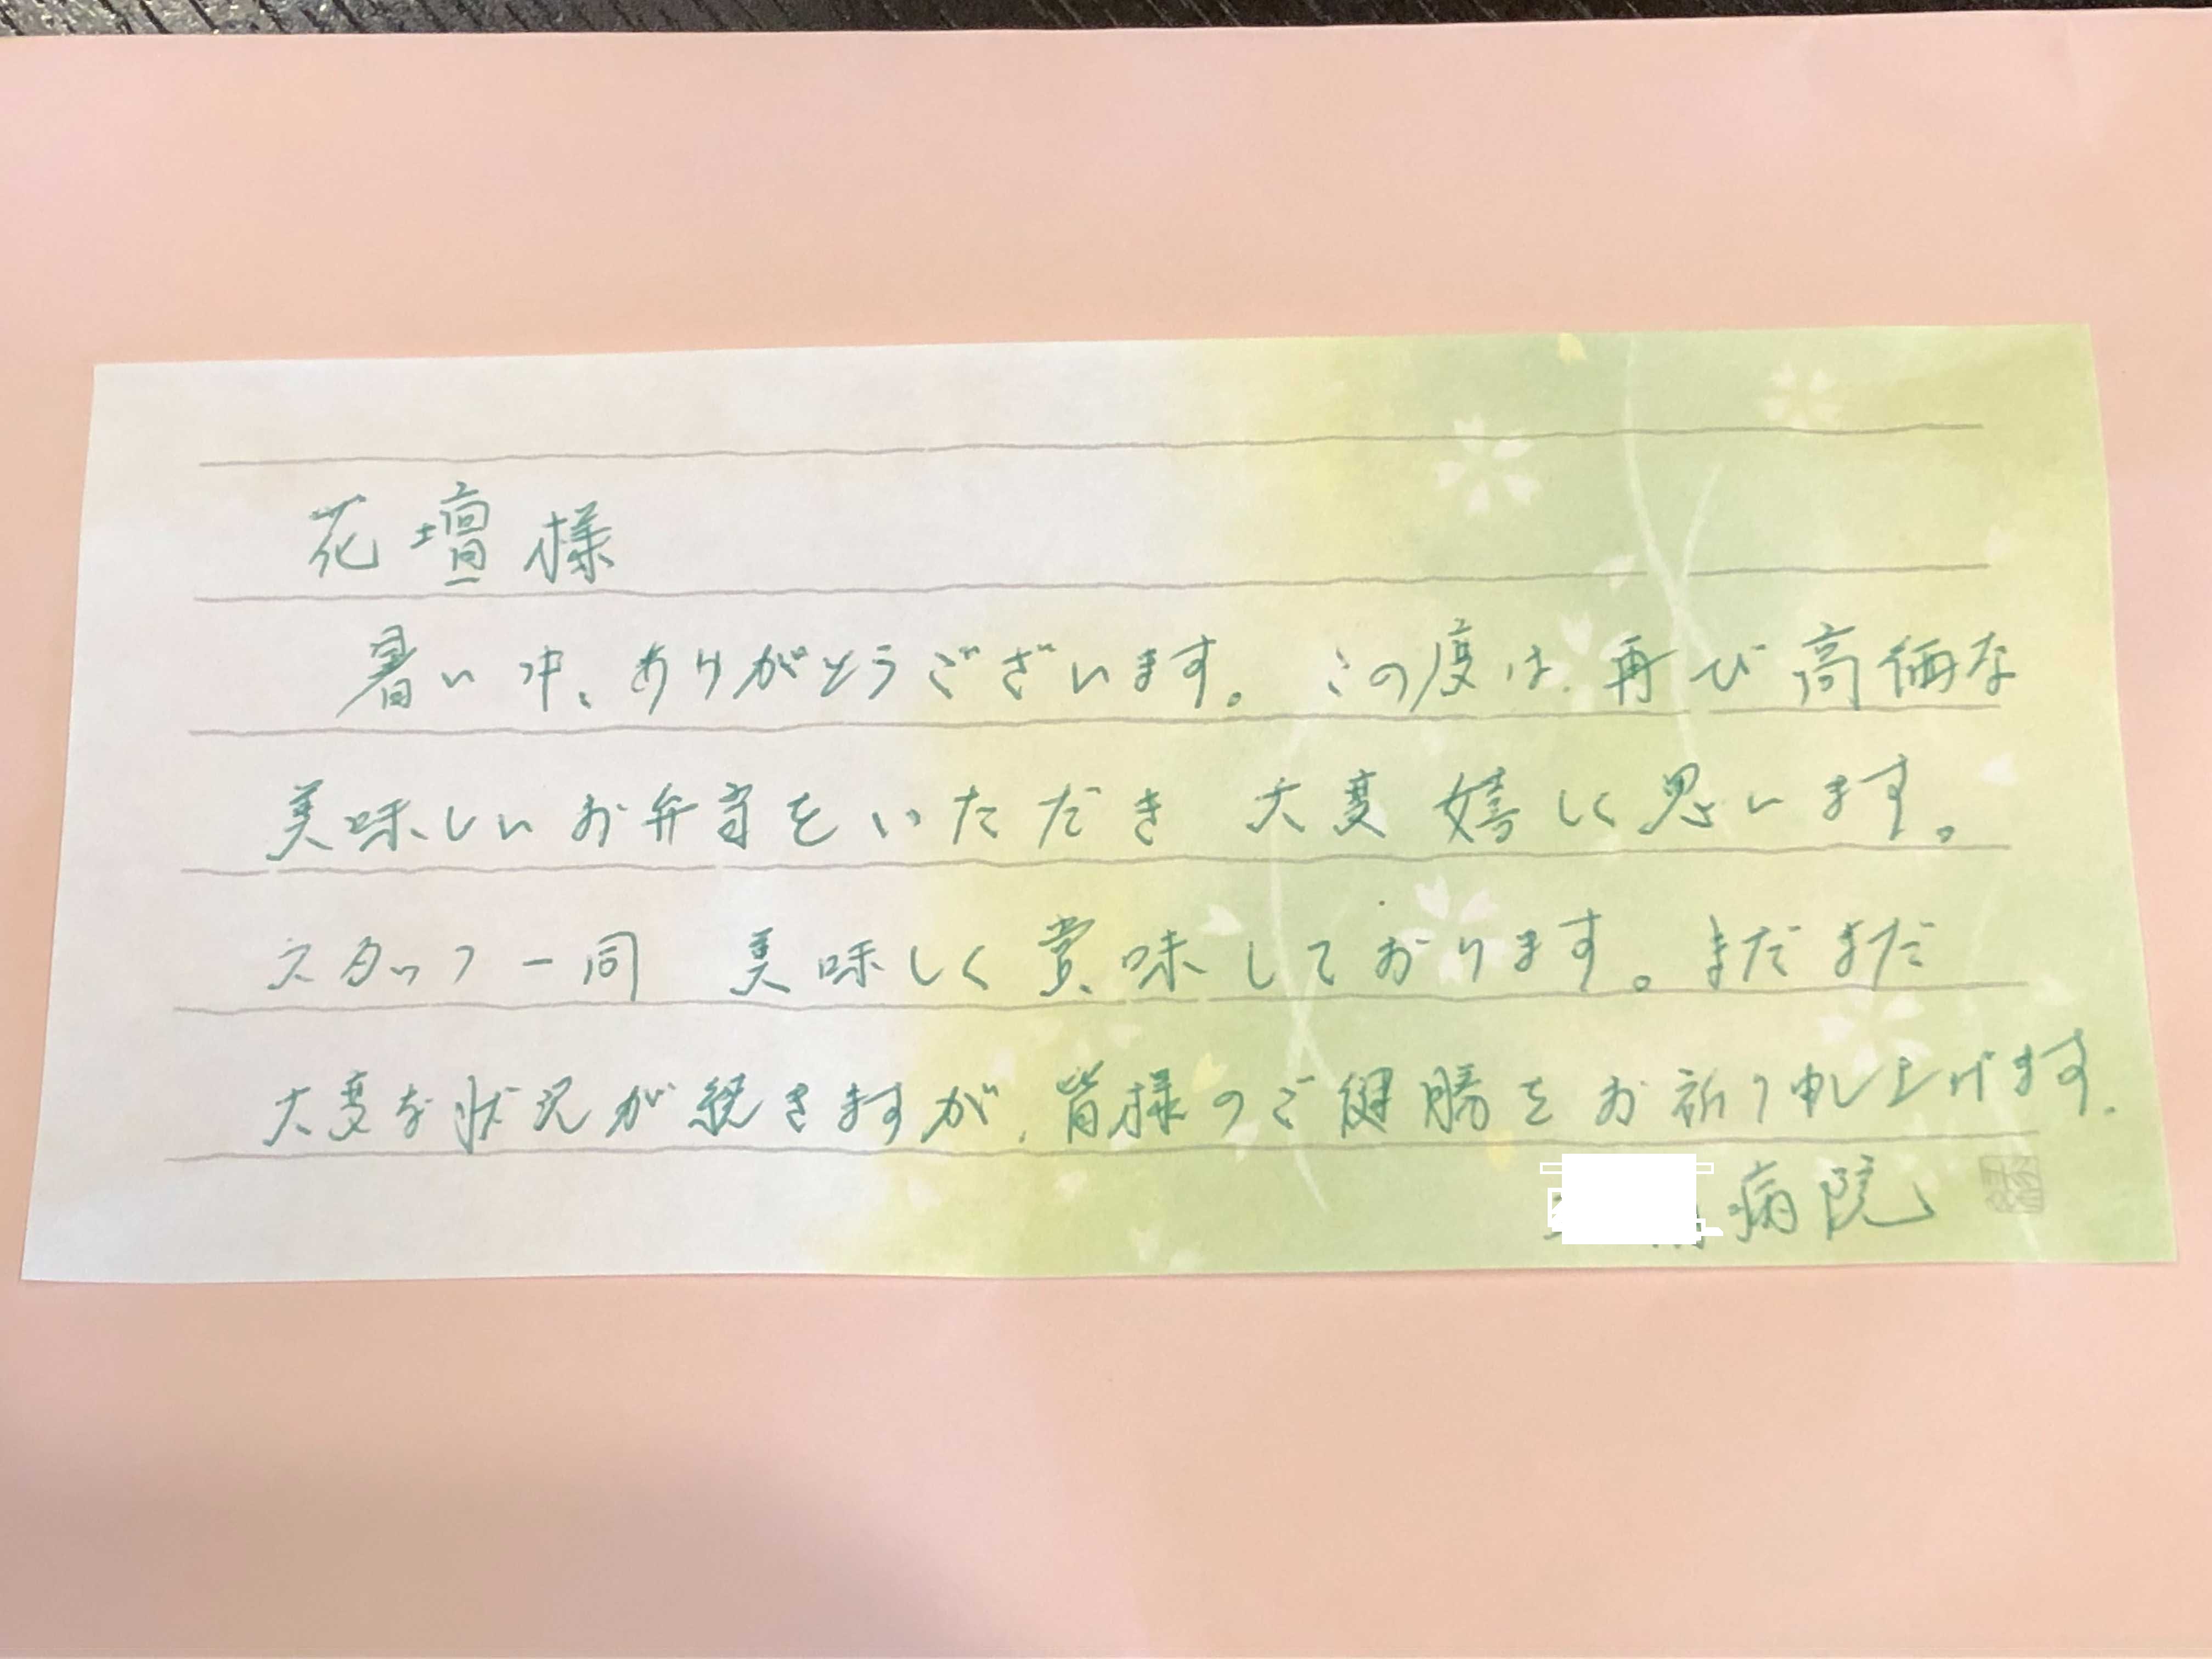 花壇様
暑い中、ありがとうございます。この度は、再び高価な
美味しいお弁当をいただき 大変 嬉しく思います。
スタッフ一同 美味しく賞味しております。まだまだ
大変な状況が続きますが、皆様のご健勝をお祈り申し上げます。
病院